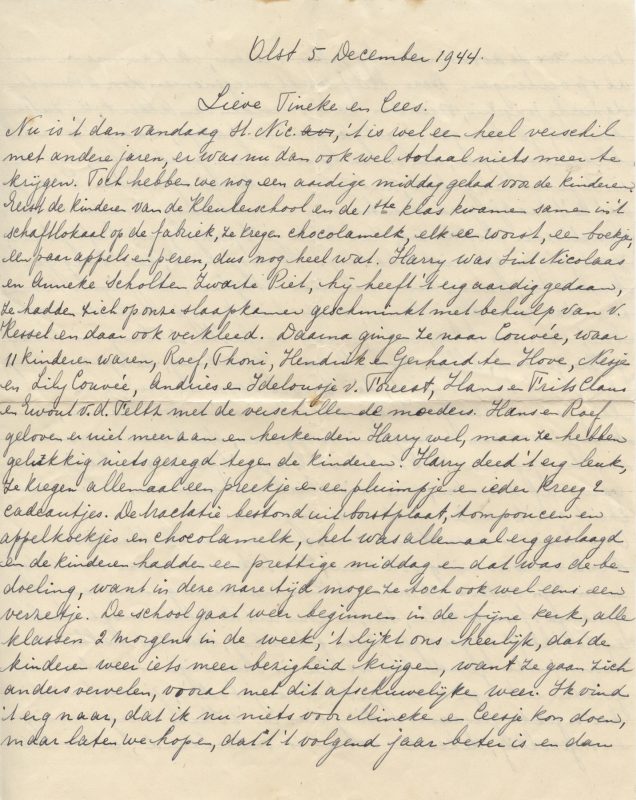 Olst 5 December 1944.
Lieve Tineke en Cees.
Nu is 't dan vandaag St. Nic. avs, 't is wel een heel verschil
met andere jaren, er was nu dan ook wel totaal niets meer te
krijgen. Toch hebben we nog een aardige middag gehad voor de kinderen.
Eerst de kinderen van de Kleuterschool en de 1ste klas kwamen samen in 't
schaftlokaal op de fabriek, ze kregen chocolamelk, elk een worst, een boekje,
een paar appels en peren, dus nog heel wat. Harry was Sint Nicolaas
en Anneke Scholten Zwarte Piet, hij heeft 't erg aardig gedaan,
ze hadden zich op onze slaapkamer geschminkt met behulp van v.
Kessel en daar ook verkleed. Daarna gingen ze naar Couvée, waar
11 kinderen waren, Roef, Thoni, Hendrik en Gerhard ten Hove, Nesje
en Lily Couvée, Andries en Idelousje v. Foreest, Hans en Frits Claus
en Ewout v.d. Feltz met de verschillende moeders. Hans en Roef
geloven er niet meer aan en herkenden Harry wel, maar ze hebben
gelukkig niets gezegd tegen de kinderen. Harry deed 't erg leuk,
ze kregen allemaal een preekje en een pluimpje en ieder kreeg 2
cadeautjes. De tractatie bestond uit borstplaat, tompoucen en
appelkoekjes en chocolamelk, het was allemaal erg geslaagd
en de kinderen hadden een prettige middag en dat was de be-
doeling, want in deze nare tijd mogen ze toch ook wel eens een
verzetje. De school gaat weer beginnen in de fijne kerk, alle
klassen 2 morgens in de week, 't lijkt ons heerlijk, dat de
kinderen weer iets meer bezigheid krijgen, want ze gaan zich
anders vervelen, vooral met dit afschuwelijke weer. Ik vind
't erg naar, dat ik nu niets voor Mineke en Ceesje kon doen,
maar laten we hopen, dat 't volgend jaar beter is en dan